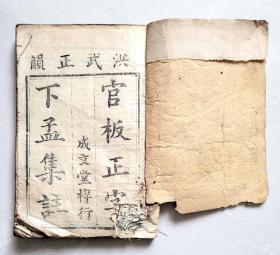 洪武正韻
官板正字
成文堂梓行
下孟集註